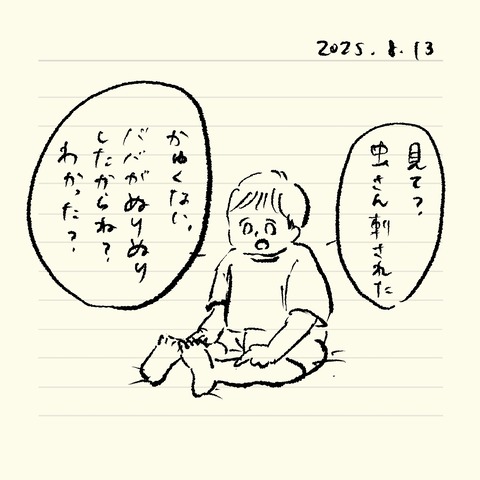 2025.8.13
見て?
虫さん刺された
かゆくない。
ババがぬりぬり
したからね?
わかった?